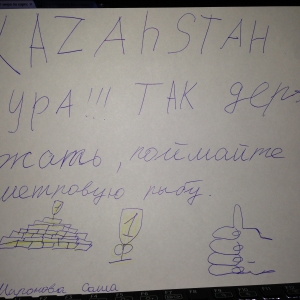 KAZAHSTAH
УРА!!! ТАК дер-
жать, поймайте
метровую рыбу.
1
Миронова Саша